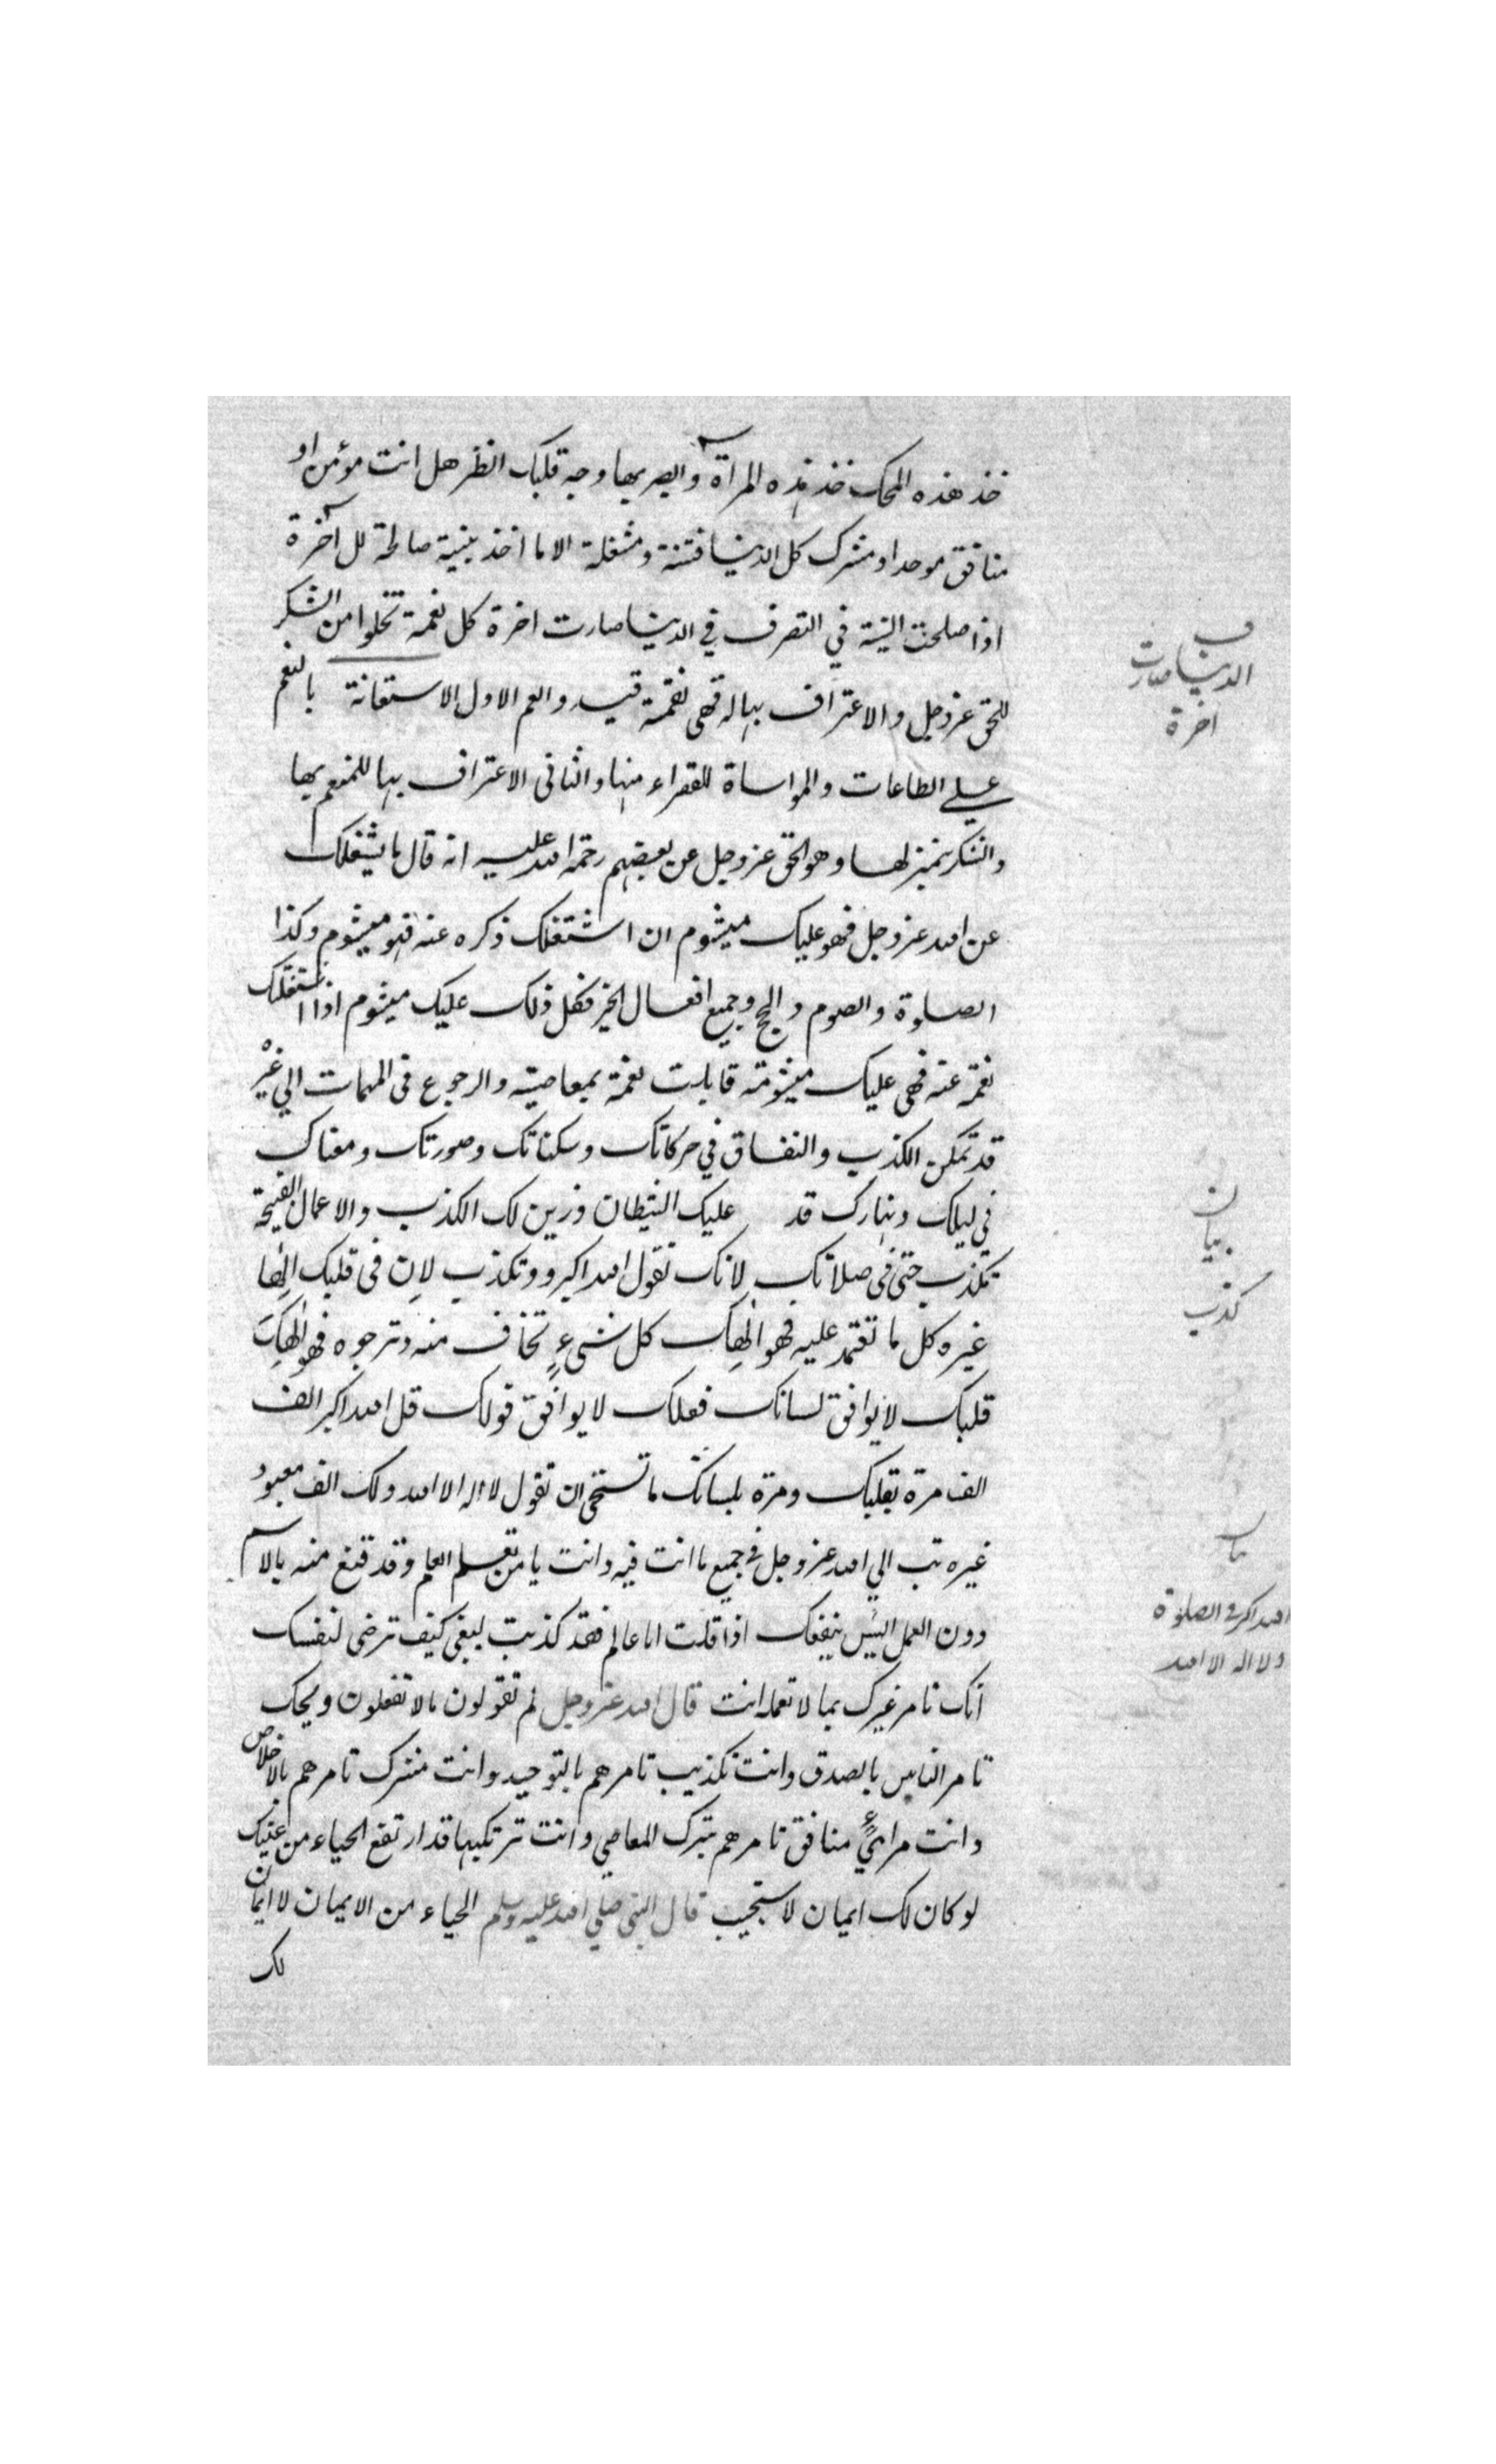 خذ هذه المحك خذ هذه المرآة وابصر بها وجه قلبك انظر هل انت مؤمن او
منافق موحد او مشرك كل الدنيا فتنة ومشغلة الا ما اخذ بنية صالحة للآخرة
اذا صلحت النية في التصرف في الدنيا صارت اخرة كل نعمة تخلوا من الشكر
للحق عز وجل والاعتراف بها له فهى نقمة قيد والعم الاول الاستعانة بالنعم
على الطاعات والمواساة للفقراء منها والثانى الاعتراف بها للمنعم بها
والشكر لها وهو الحق عز وجل عن بعضهم رحمة الله عليه انه قال ما يشغلك
عن الله عز وجل فهو عليك ميشوم ان اشتغلك ذكره عنه فهو ميشوم وكذا
الصلوة والصوم والحج وجميع افعال الخير فكل ذلك عليك ميشوم اذا اشتغلتك
نعمة عنه فهى عليك ميشومة قابلت نعمة بمعاصيه والرجوع فى المهمات الي غيره
قد تمكن الكذب والنفاق في حركاتك وسكناتك وصورتك ومعناك
في ليلك ونهارك قد عليك الشيطان وزين لك الكذب والاعمال القبيحة
تكذب حتى فى صلاتك لانك تقول الله اكبر وتكذب لان فى قلبك الٰها
غيره كل ما تعتمد عليه فهو الٰهك كل شىء تخاف منه وترجوه فهو الٰهك
قلبك لا يوافق لسانك فعلك لا يوافق قولك قل الله اكبر الف
الف مرة بقلبك ومرة بلسانك ما تستحى ان تقول لا اله الا الله ولك الف معبود
غيره تب الي الله عز وجل فى جميع ما انت فيه وانت يا من تعلم العلم وقد قنع منه بالاسم
دون العمل اليس ينفعك اذا قلت انا عالم فقد كذبت لبغى كيف ترضى لنفسك
انك تامر غيرك بما لا تعمله انت قال الله عز وجل لم تقولون ما لا تفعلون ويحك
تامر الناس بالصدق وانت تكذب تامرهم بالتوحيد وانت مشرك تامرهم بالاخلاص
وانت مرائيٌ منافق تامرهم بترك المعاصي وانت ترتكبها قد ارتفع الحياء من عينيك
لو كان لك ايمان لاستحييت قال النبى صلى الله عليه وسلم الحياء من الايمان لا ايمان
لك
ف
الدنيا صارت
اخرة
بيان
كذب
الله اكبر فى الصلوة
ولا اله الا الله